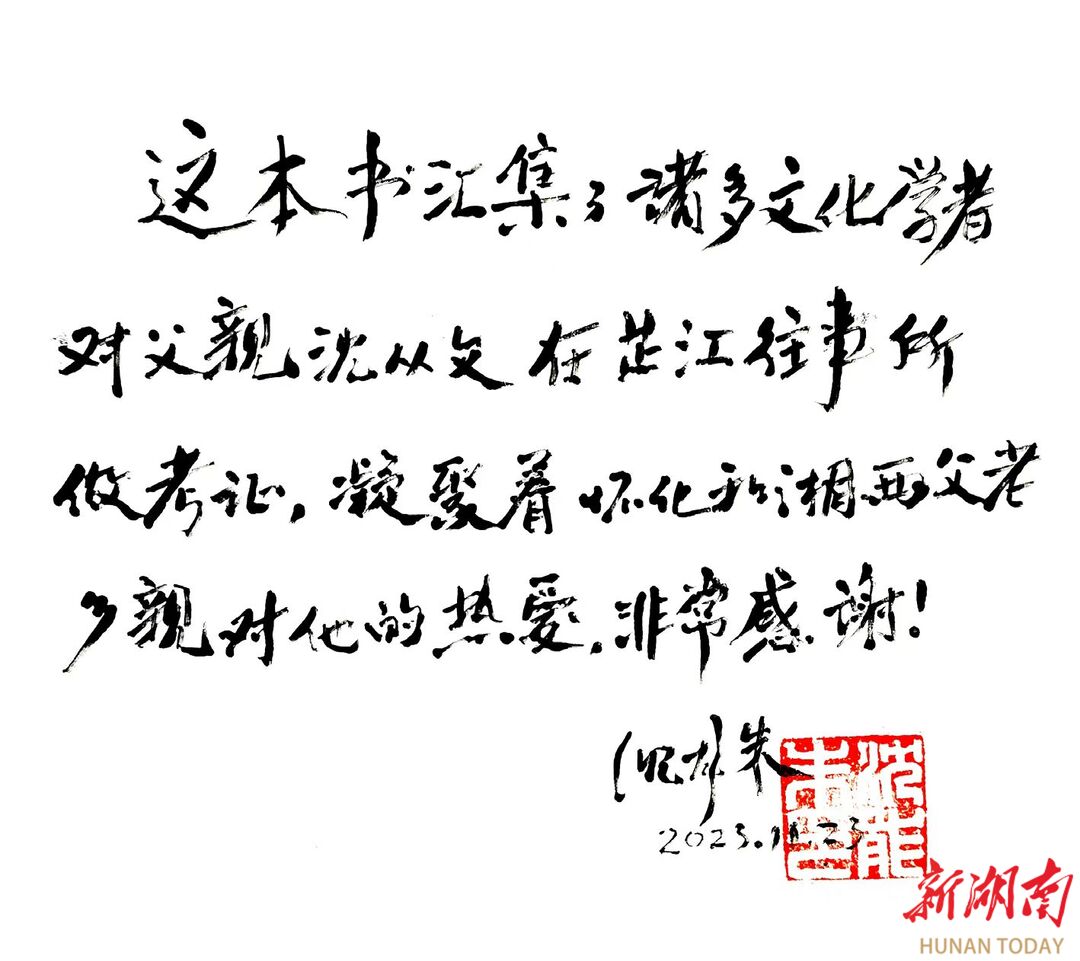 这本书汇集了诸多文化学者
对父亲沈从文在芷江往事所
做考证，凝聚着怀化和湘西父老
乡亲对他的热爱，非常感谢！
沈龙朱
2023.11.23
新湖南
HUNAN TODAY